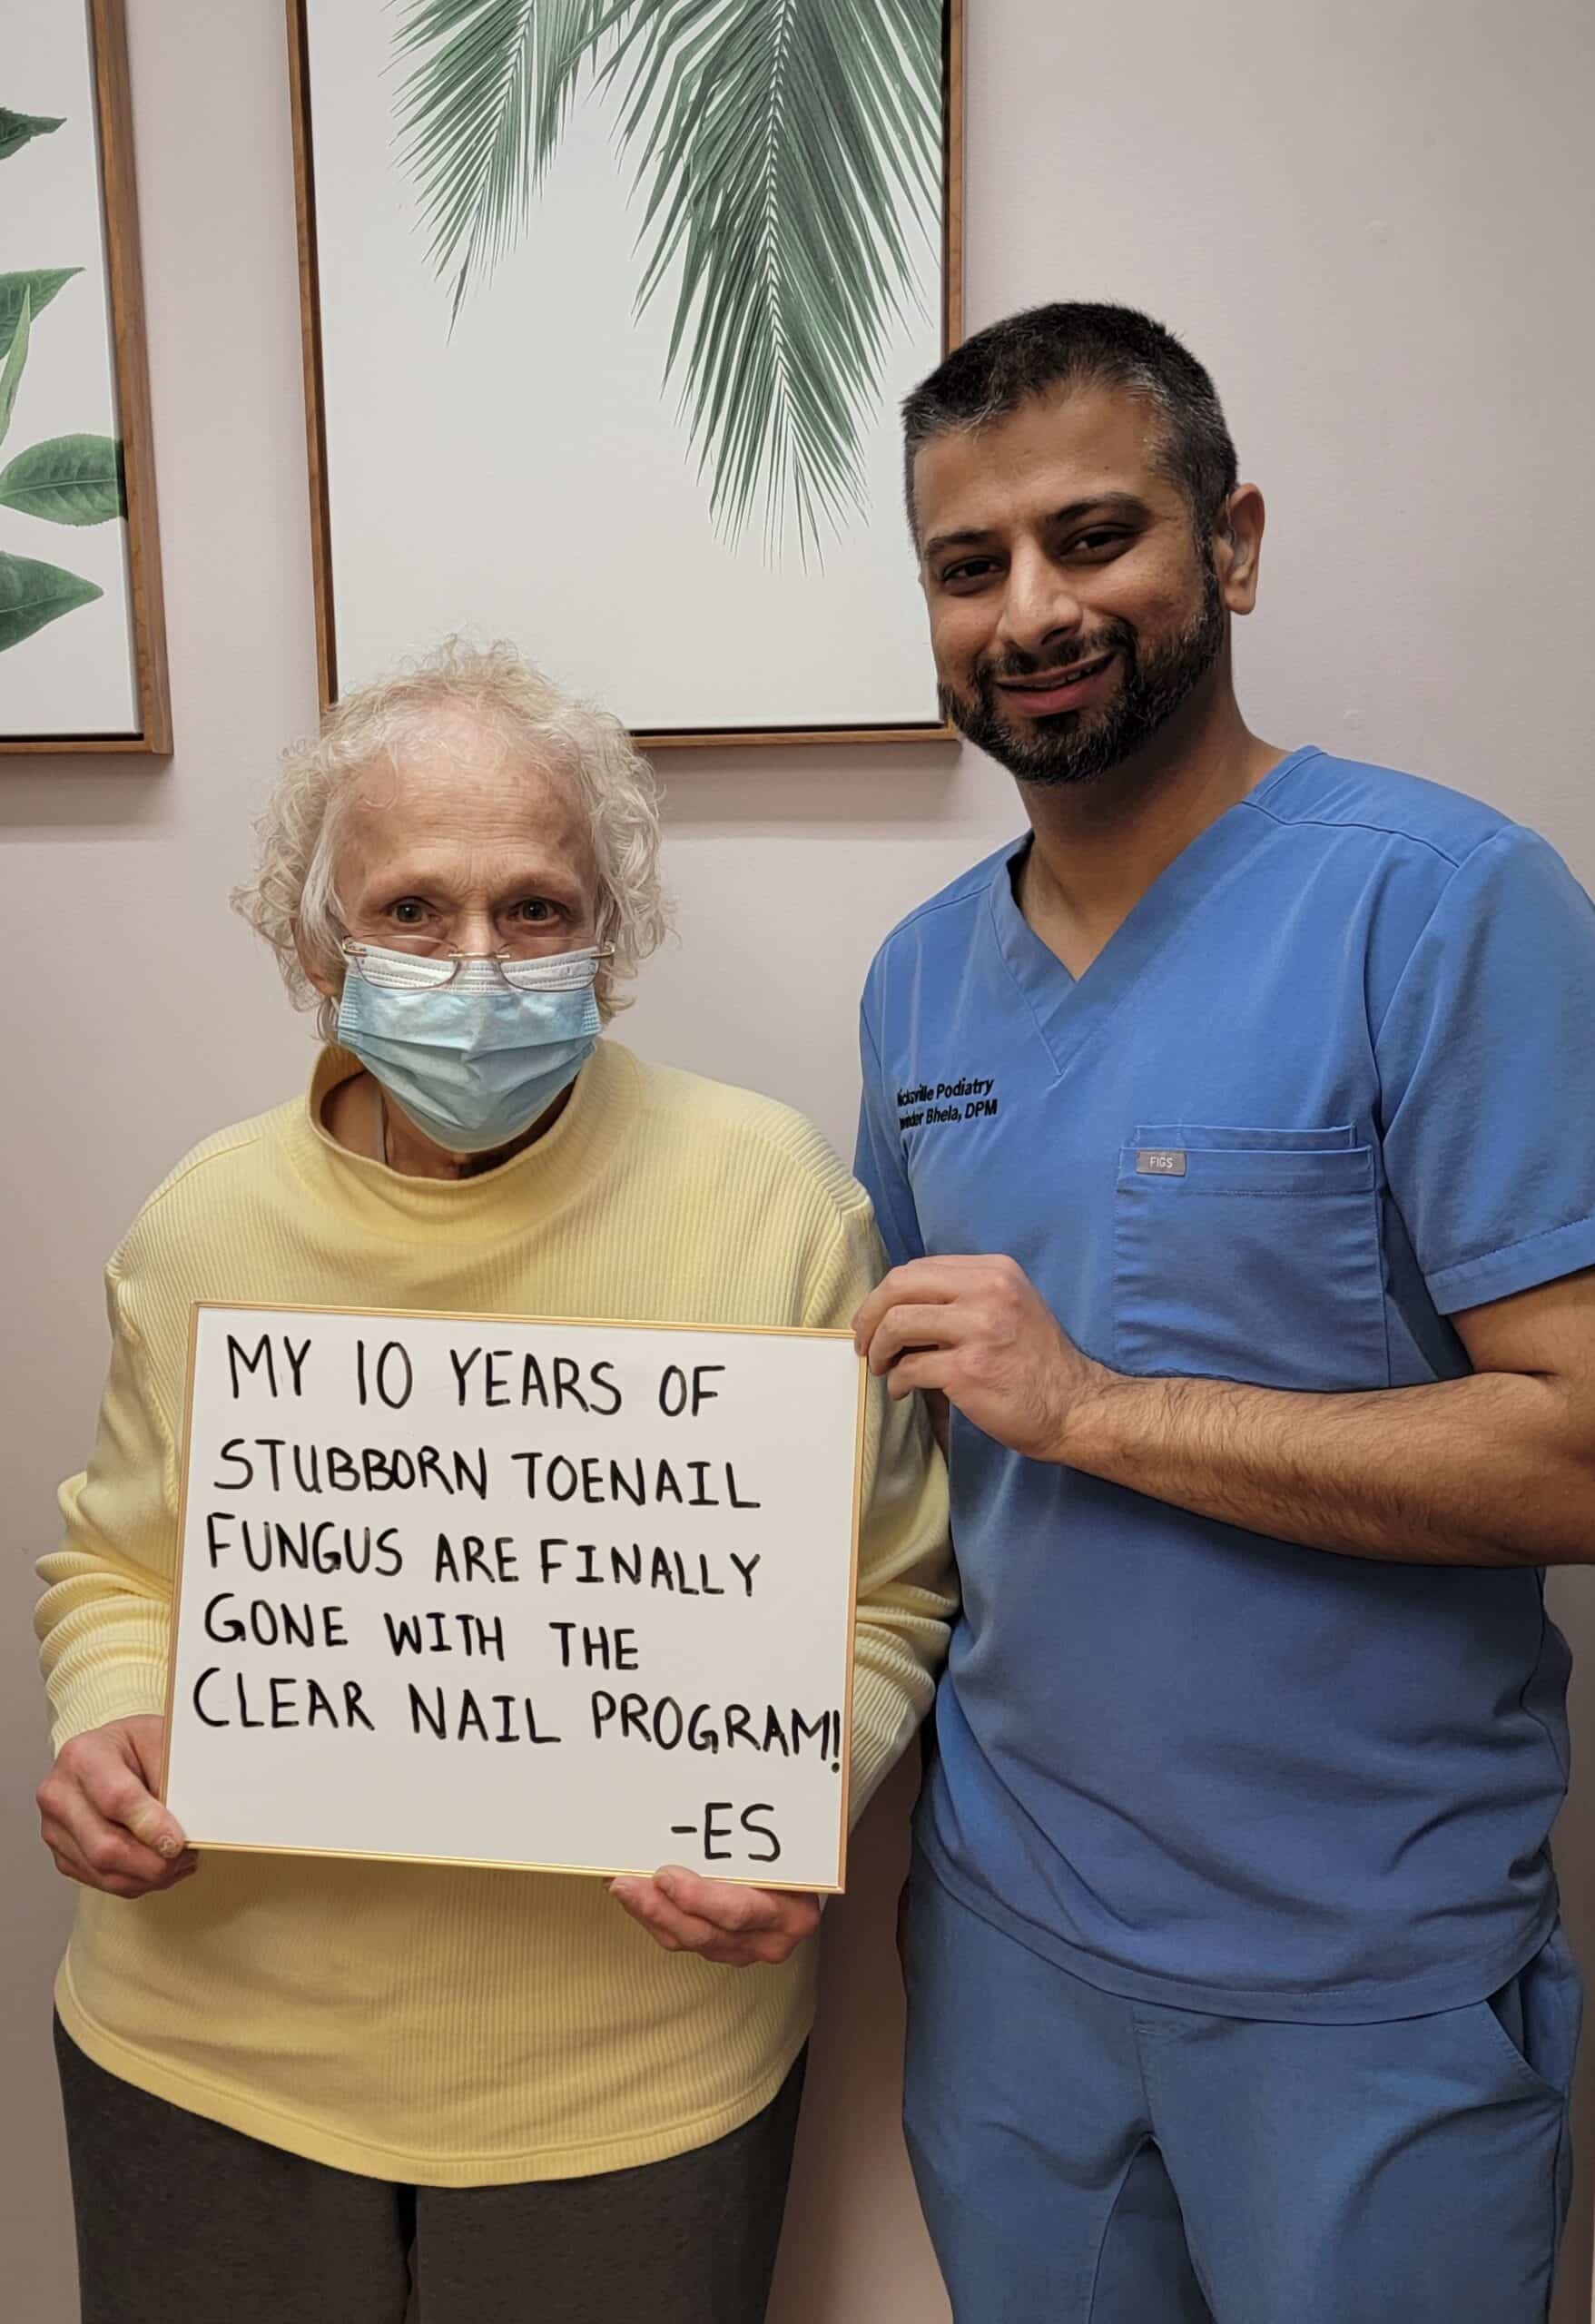 Podiatry
Bhela, DPM
FIGS
MY 10 YEARS OF
STUBBORN TOENAIL
FUNGUS ARE FINALLY
GONE WITH THE
CLEAR NAIL PROGRAM!
-ES